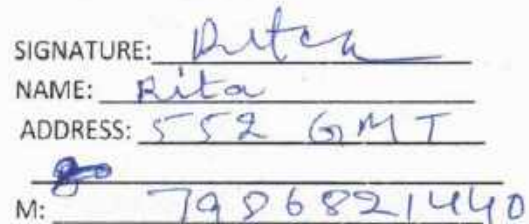 SIGNATURE:
NAME: Rita
ADDRESS: 552 GMT
M: 7986821440